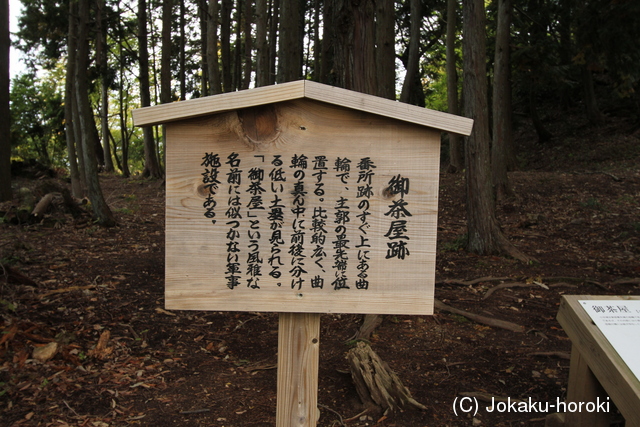 御茶屋跡
番所跡のすぐ上にある曲
輪で、主郭の最先端に位
置する。比較的広く、曲
輪の真ん中に前後に分け
る低い土塁が見られる。
「御茶屋」という風雅な
名前には似つかない軍事
施設である。
御茶屋
(C) Jokaku-horoki